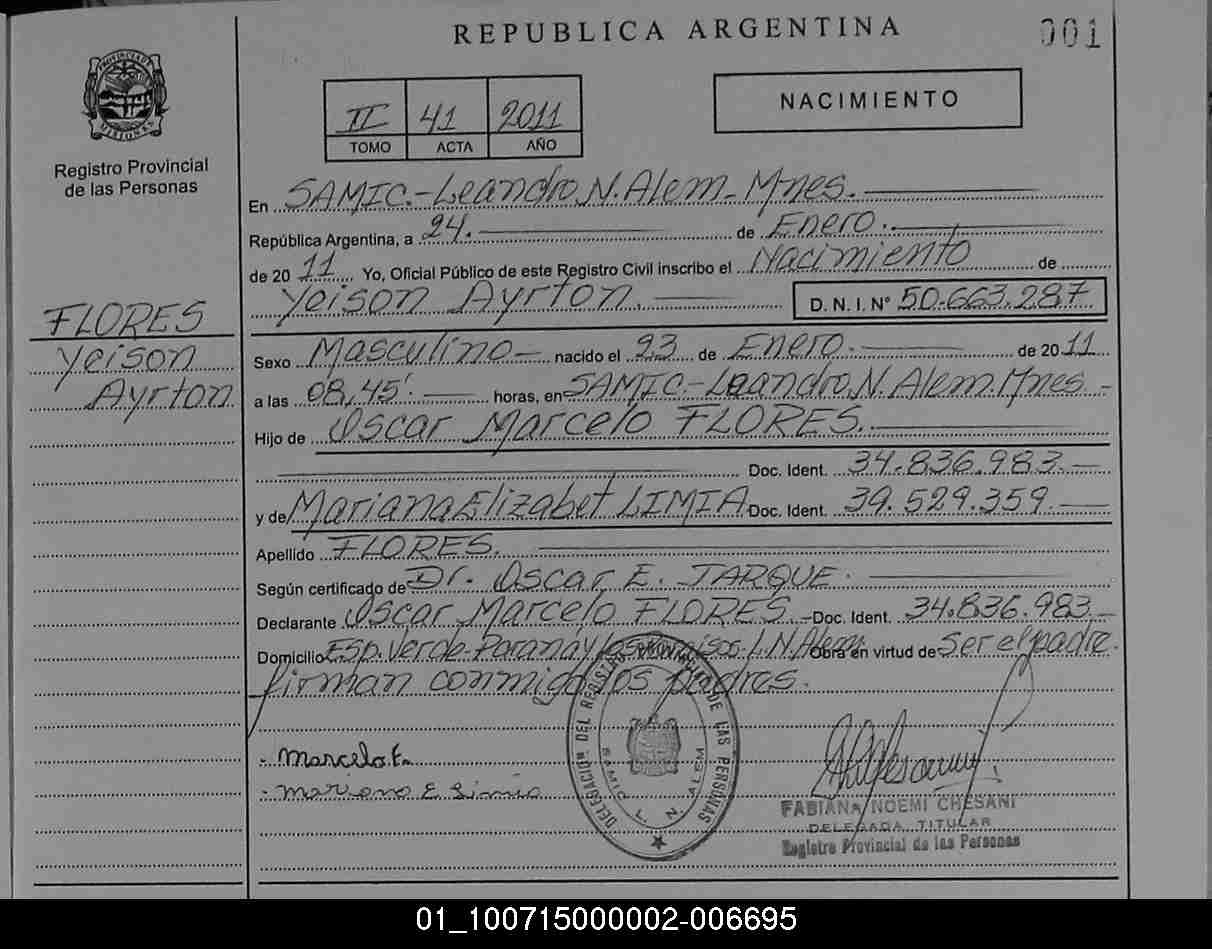 REPUBLICA ARGENTINA
001
PROVINCIA DE MISIONES
Registro Provincial
de las Personas
II 41 2011
TOMO ACTA AÑO
NACIMIENTO
En SAMIC.-Leandro N. Alem-Mnes.
República Argentina, a 24. de Enero.
de 2011 Yo, Oficial Público de este Registro Civil inscribo el Nacimiento de
Yeison Ayrton. D.N.I. Nº 50.663.287
FLORES
Yeison
Ayrton
Sexo Masculino nacido el 23 de Enero. de 2011
a las 08,45'. horas, en SAMIC-Leandro N. Alem. Mnes.-
Hijo de Oscar Marcelo FLORES.
Doc. Ident. 34.836.983.
y de Mariana Elizabet LIMIA Doc. Ident. 39.529.359.
Apellido FLORES.
Según certificado de Dr. Oscar E. JARQUE.
Declarante Oscar Marcelo FLORES.-Doc. Ident. 34.836.983.-
Domicilio Esp. Verde-Paraná y Los Paraísos-L.N.Alem. Obra en virtud de Ser el padre.
firman conmigo los padres.
DELEGACION DEL REGISTRO PROVINCIAL DE LAS PERSONAS
SAMIC L. N. ALEM
Marcelo F.
Mariana E Limia
FABIANA NOEMI CHESANI
DELEGADA TITULAR
Registro Provincial de las Personas
01_100715000002-006695